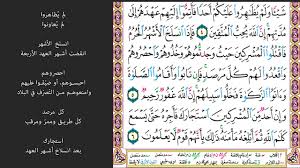 شَيْـًٔا وَلَمْ يُظَٰهِرُوا۟ عَلَيْكُمْ أَحَدًا فَأَتِمُّوٓا۟ إِلَيْهِمْ عَهْدَهُمْ إِلَىٰ
مُدَّتِهِمْ إِنَّ ٱللَّهَ يُحِبُّ ٱلْمُتَّقِينَ ٤ فَإِذَا ٱنسَلَخَ ٱلْأَشْهُرُ ٱلْحُرُمُ
فَٱقْتُلُوا۟ ٱلْمُشْرِكِينَ حَيْثُ وَجَدتُّمُوهُمْ وَخُذُوهُمْ وَٱحْصُرُوهُمْ
وَٱقْعُدُوا۟ لَهُمْ كُلَّ مَرْصَدٍ فَإِن تَابُوا۟ وَأَقَامُوا۟ ٱلصَّلَوٰةَ وَءَاتَوُا۟
ٱلزَّكَوٰةَ فَخَلُّوا۟ سَبِيلَهُمْ إِنَّ ٱللَّهَ غَفُورٌ رَّحِيمٌ ٥ وَإِنْ أَحَدٌ
مِّنَ ٱلْمُشْرِكِينَ ٱسْتَجَارَكَ فَأَجِرْهُ حَتَّىٰ يَسْمَعَ
كَلَٰمَ ٱللَّهِ ثُمَّ أَبْلِغْهُ مَأْمَنَهُۥ ذَٰلِكَ بِأَنَّهُمْ قَوْمٌ لَّا يَعْلَمُونَ ٦
لم يُظاهروا
لم يُعاونوا
انسلخ الأشهر
انقضت أشهر العهد الأربعة
احصروهم
احبسوهم، أو ضيّقوا عليهم
وامنعوهم من التصرف في البلاد
كل مرصد
كل طريق وممرّ ومرقب
استجارك
بعد انسلاخ أشهر العهد